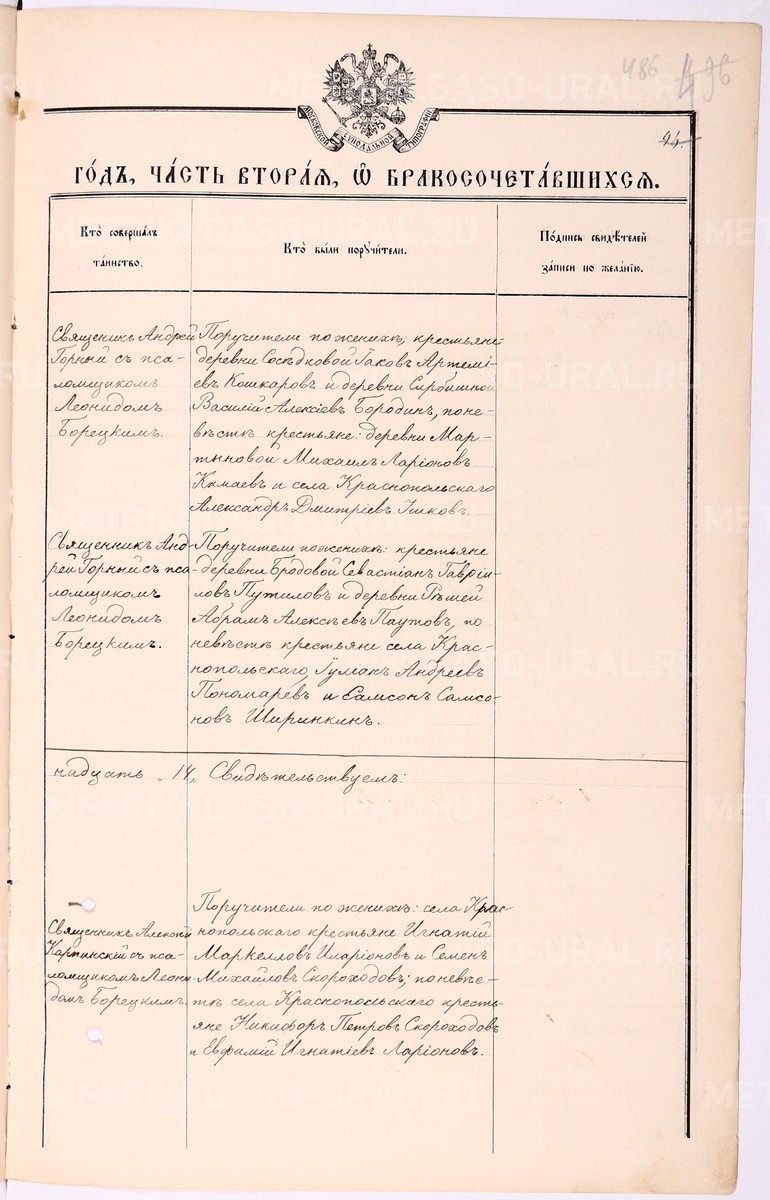 486 496
94.
МОСКОВСКОЙ СѴНОДАЛЬНОЙ ТИПОГРАФІИ
ГО́ДЪ, ЧА́СТЬ ВТОРА́Я, Ѡ҆ БРАКОСОЧЕТА́ВШИХСЯ.
Кто̀ соверша́лъ
та́инство.
Кто̀ бы́ли порꙋчи́тели.
По́дпись свидѣ́телей
за́писи по жела́нію.
Священникъ Андрей
Горный съ пса-
ломщикомъ
Леонидомъ
Борецкимъ.
Поручители по женихѣ, крестьяне:
деревни Сосѣдковой Іаковъ Артемі-
евъ Кошкаровъ и деревни Сирбишной
Василій Алексіевъ Бородинъ, по не-
вѣстѣ крестьяне: деревни Мар-
тыновой Михаилъ Ларіоновъ
и села Краснопольскаго
Александръ Дмитріевъ
Священникъ Анд-
рей Горный съ пса-
ломщикомъ
Леонидомъ
Борецкимъ.
Поручители по женихѣ: крестьяне
деревни Бродовой Севастіанъ Гавріи-
ловъ Путиловъ и деревни Рѣшей
Абрамъ Алексѣевъ Паутовъ, по
невѣстѣ крестьяне села Крас-
нопольскаго, Іуліанъ Андреевъ
Пономаревъ и Самсонъ Самсо-
новъ Ширинкинъ.
надцать „14„ Свидѣтельствуемъ:
Священникъ Алексій
Карпинскій съ пса-
ломщикомъ Леони-
домъ Борецкимъ.
Поручители по женихѣ: села Крас-
нопольскаго крестьяне Игнатій
Маркелловъ Иларіоновъ и Семенъ
Михайловъ Скороходовъ; по невѣс-
тѣ села Краснопольскаго кресть-
яне Никифоръ Петровъ Скороходовъ
и Евфимій Игнатіевъ Ларіоновъ.
METRIKI.GASO-URAL.RU